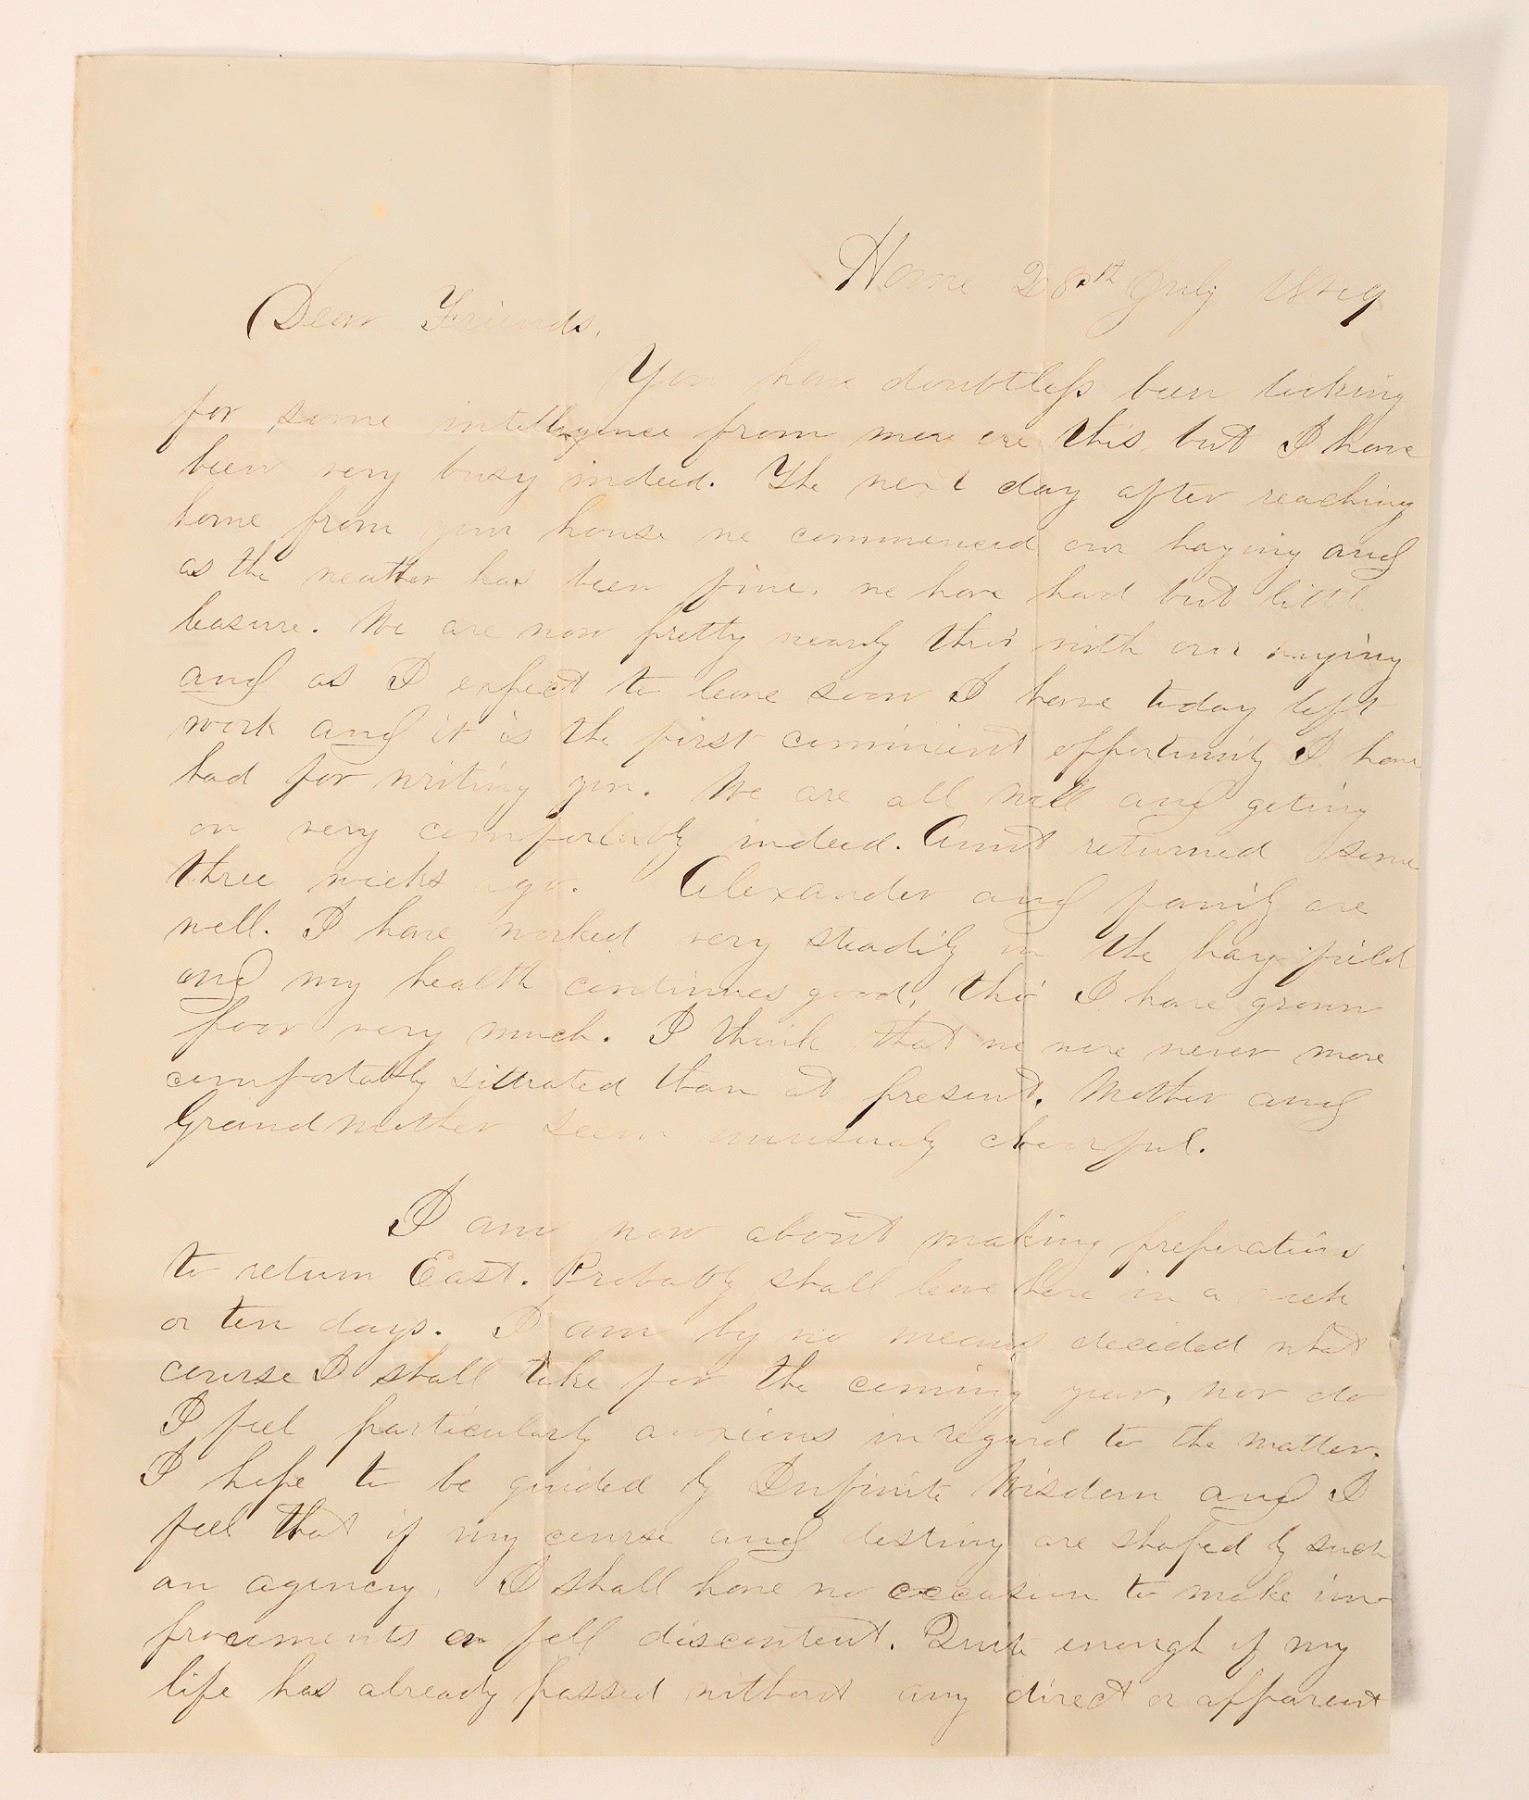 Home 28th July 1849
Dear Friends,
You have doubtless been looking
for some intelligence from me ere this, but I have
been very busy indeed. The next day after reaching
home from your house we commenced our haying and
as the weather has been fine, we have had but little
leasure. We are now pretty nearly thro' with our haying
and as I expect to leave soon I have today left
work and it is the first convinient opportunity I have
had for writing you. We are all well and geting
on very comfortably indeed. Aunt returned some
three weeks ago. Alexander and family are
well. I have worked very steadily in the hay field
and my health continues good, tho' I have grown
poor very much. I think that we were never more
comfortably situated than at present. Mother and
Grandmother seem unusualy cheerful.
I am now about making preperations
to return East. Probably shall leave here in a week
or ten days. I am by no means decided what
course I shall take for the coming year, nor do
I feel particularly anxious in regard to the matter.
I hope to be guided by Infinite Wisdom and I
feel that if my course and destiny are shaped by such
an agency, I shall have no occasion to make im-
provements or fell discontent. Quite enough of my
life has already passed without any direct or apparent